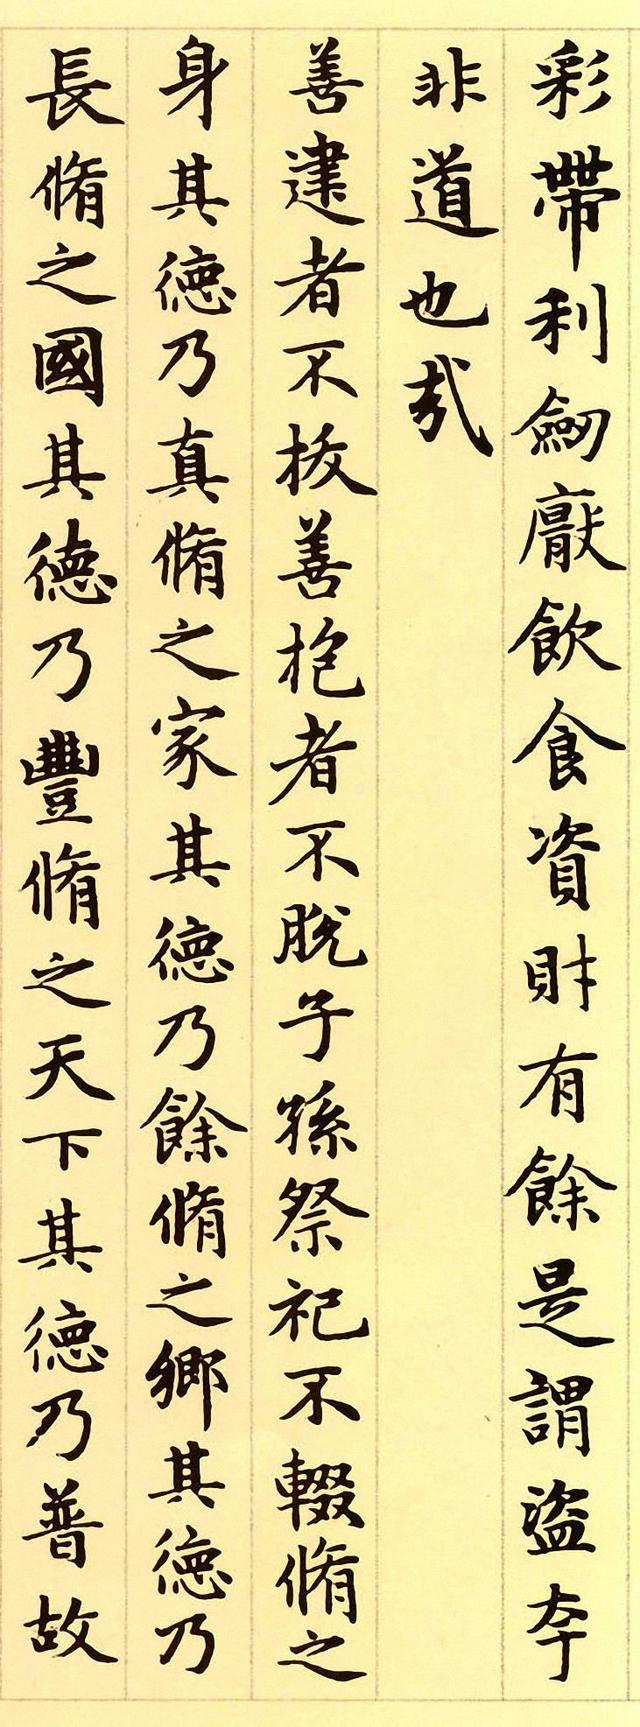 彩帶利劔厭飲食資財有餘是謂盜夸
非道也哉
善建者不拔善抱者不脫子孫祭祀不輟脩之
身其徳乃真脩之家其徳乃餘脩之鄉其徳乃
長脩之國其徳乃豐脩之天下其徳乃普故